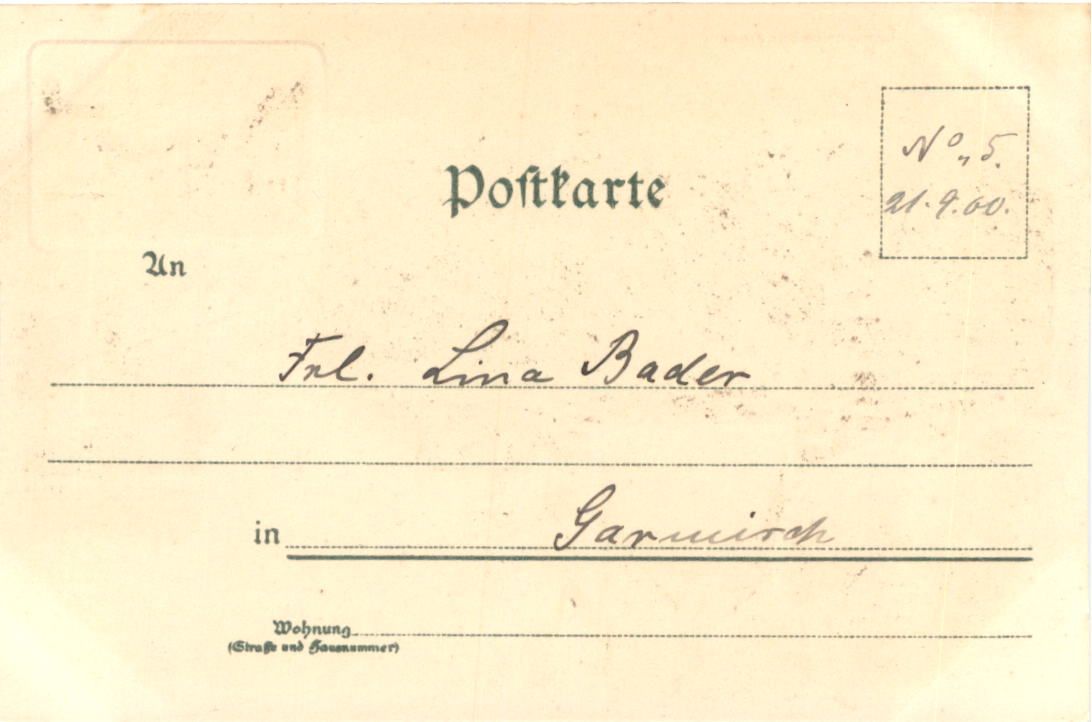 Postkarte
No. 5.
21.9.00.
An
Frl. Lina Bader
in Garmisch
Wohnung
(Straße und Hausnummer)